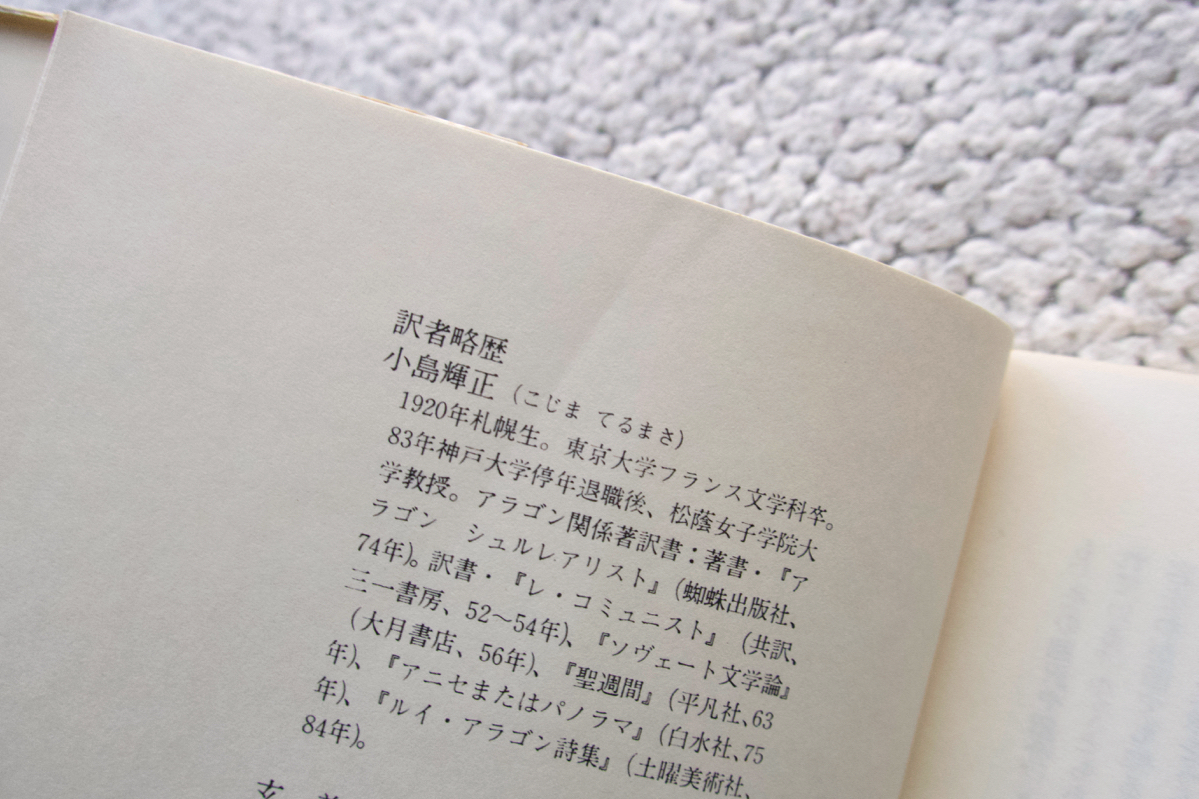 訳者略歴
小島輝正（こじま てるまさ）
1920年札幌生。東京大学フランス文学科卒。
83年神戸大学停年退職後、松蔭女子学院大
学教授。アラゴン関係著訳書：著書・『ア
ラゴン　シュルレアリスト』（蜘蛛出版社、
74年）。訳書・『レ・コミュニスト』（共訳、
三一書房、52〜54年）、『ソヴェート文学論』
（大月書店、56年）、『聖週間』（平凡社、63
年）、『アニセまたはパノラマ』（白水社、75
年）、『ルイ・アラゴン詩集』（土曜美術社、
84年）。